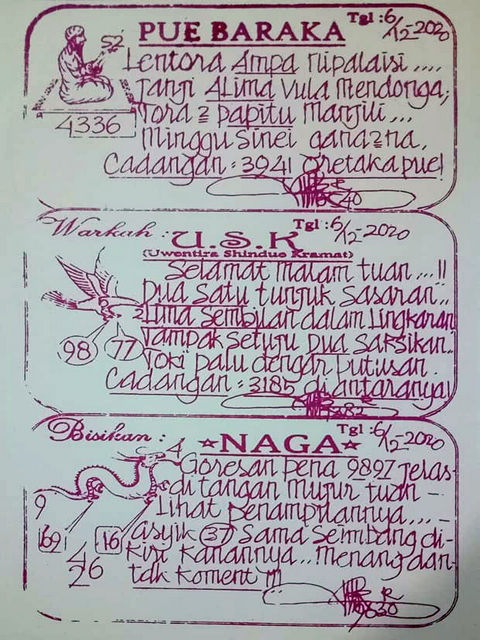 Tgl : 6/12-2020
PUE BARAKA
52
4336
Lentora Ampa nipalaisi ....
Tanji ALima Vula Mendonga;
Tora 2 papitu Manjili ...
Minggu Sinei gana2na.
Cadangan : 3041 Oretaka pue!
40
Warkah :
Tgl : 6/12-2020
U.S.K
(Uwentira Shinduo Kramat)
Selamat malam tuan ...!!
Dua satu tunjuk sasaran ..
Lima sembilan dalam lingkaran
98
77
Tampak setuju Dua saksikan ..
Toki palu dengan putusan.
Cadangan : 3185 di antaranya!
82
Bisikan :
Tgl : 6/12-2020
NAGA
4
Goresan pena 9897 jelas
di tangan mujur tuan -
Lihat penampilannya ... -
9
69
16
Asyik 37 Sama Sembang di-
Kiri Kanannya .. Menang dan
tak Koment !!!
4
26